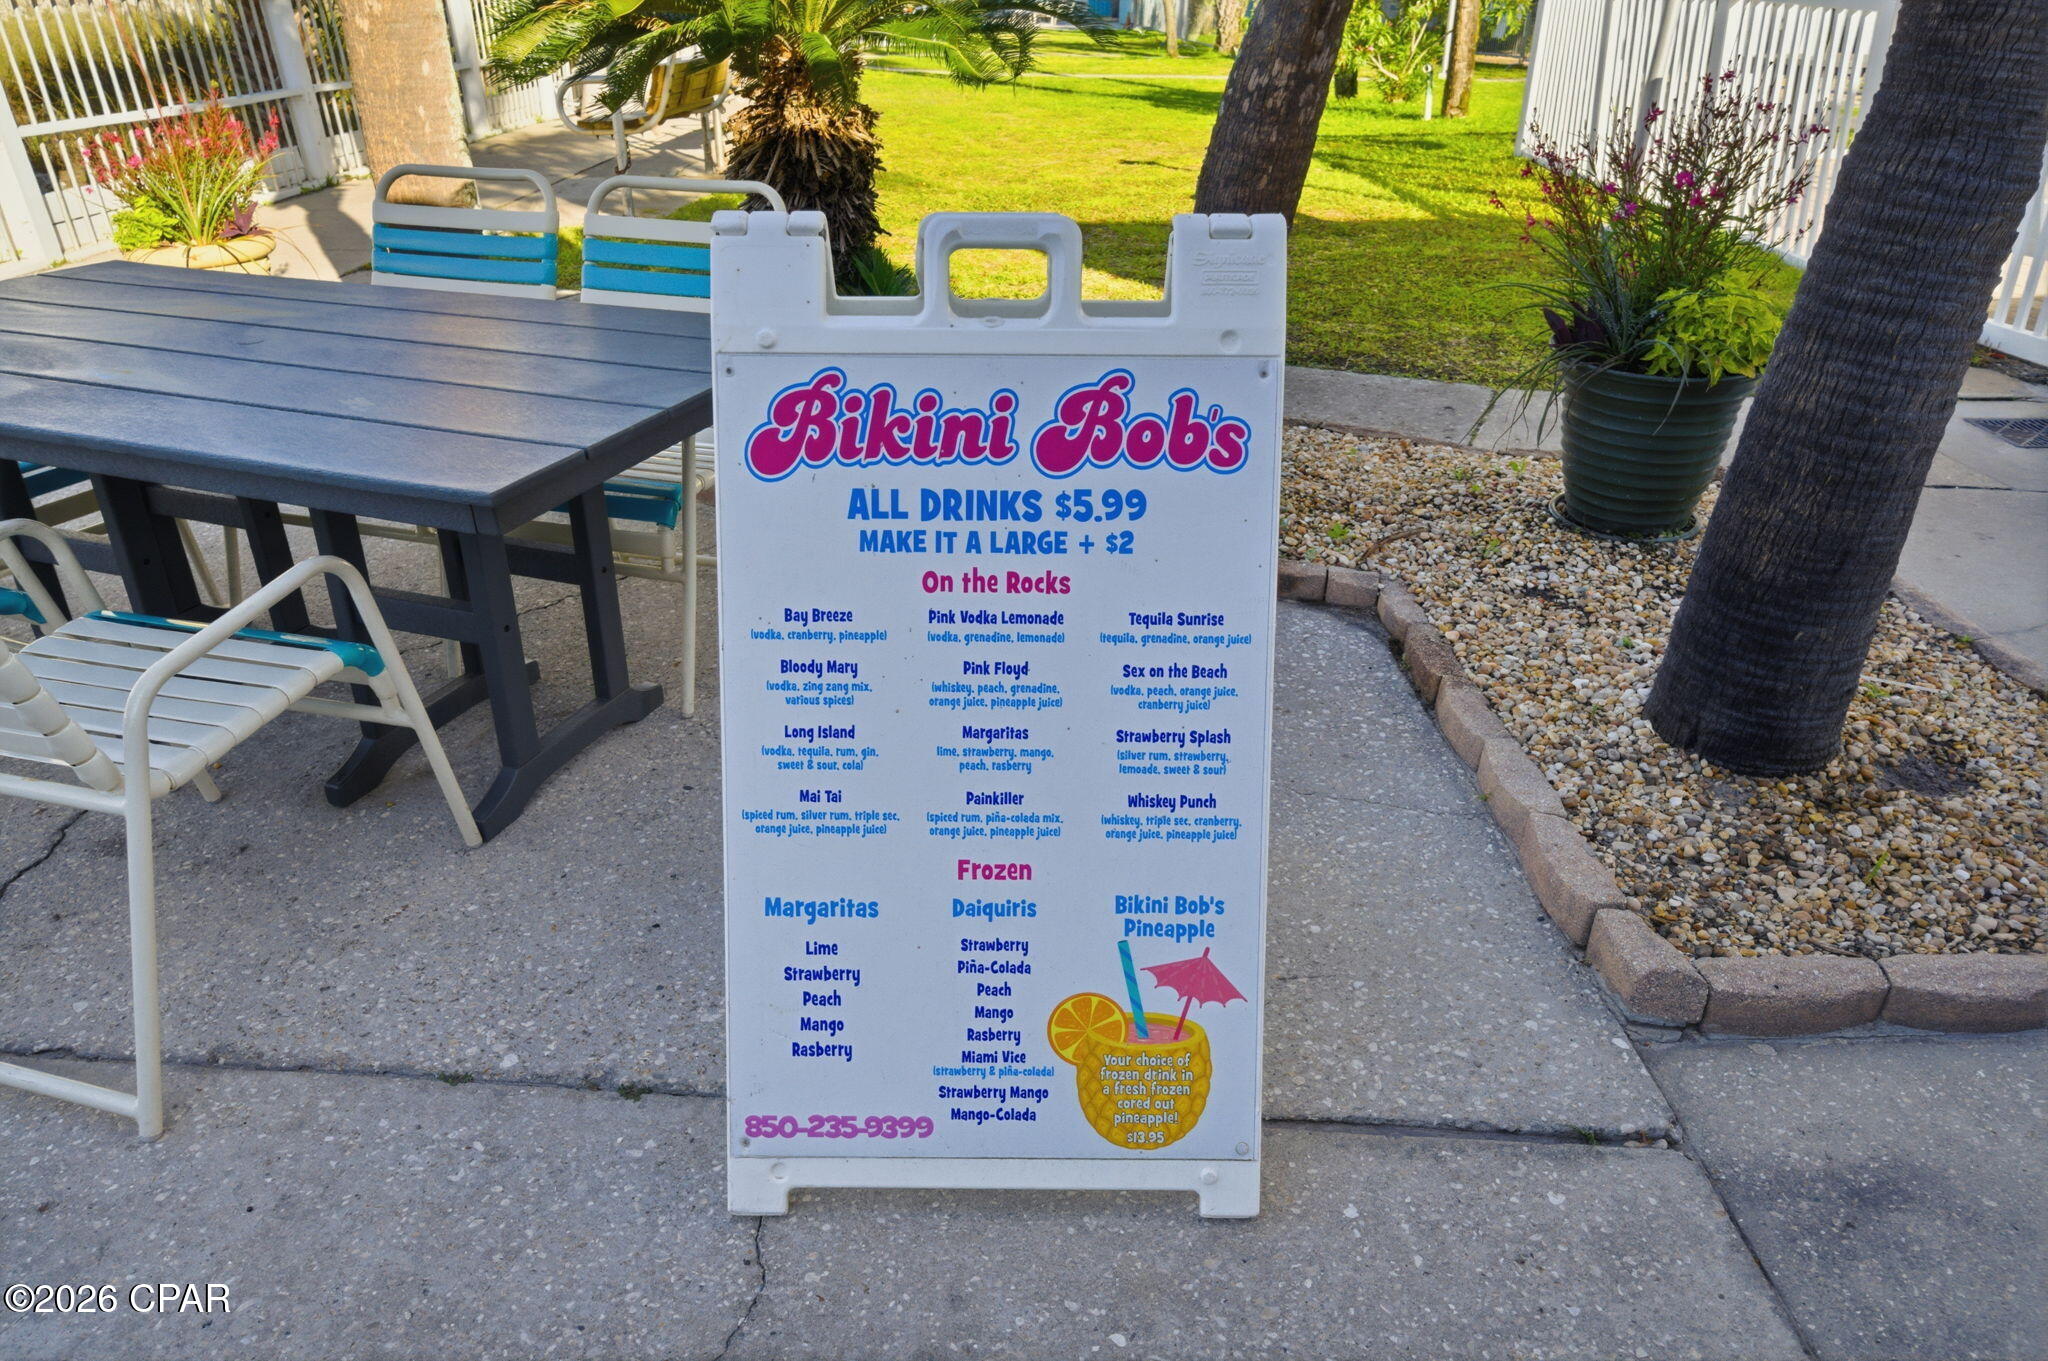 Bikini Bob's
ALL DRINKS $5.99
MAKE IT A LARGE + $2
On the Rocks
Bay Breeze
(vodka, cranberry, pineapple)
Bloody Mary
(vodka, zing zang mix,
various spices)
Long Island
(vodka, tequila, rum, gin,
sweet & sour, cola)
Mai Tai
(spiced rum, silver rum, triple sec,
orange juice, pineapple juice)
Pink Vodka Lemonade
(vodka, grenadine, lemonade)
Pink Floyd
(whiskey, peach, grenadine,
orange juice, pineapple juice)
Margaritas
lime, strawberry, mango,
peach, rasberry
Painkiller
(spiced rum, piña-colada mix,
orange juice, pineapple juice)
Tequila Sunrise
(tequila, grenadine, orange juice)
Sex on the Beach
(vodka, peach, orange juice,
cranberry juice)
Strawberry Splash
(silver rum, strawberry,
lemoade, sweet & sour)
Whiskey Punch
(whiskey, triple sec, cranberry,
orange juice, pineapple juice)
Frozen
Margaritas
Lime
Strawberry
Peach
Mango
Rasberry
Daiquiris
Strawberry
Piña-Colada
Peach
Mango
Rasberry
Miami Vice
(strawberry & piña-colada)
Strawberry Mango
Mango-Colada
Bikini Bob's
Pineapple
Your choice of
frozen drink in
a fresh frozen
cored out
pineapple!
$13.95
850-235-9399
©2026 CPAR